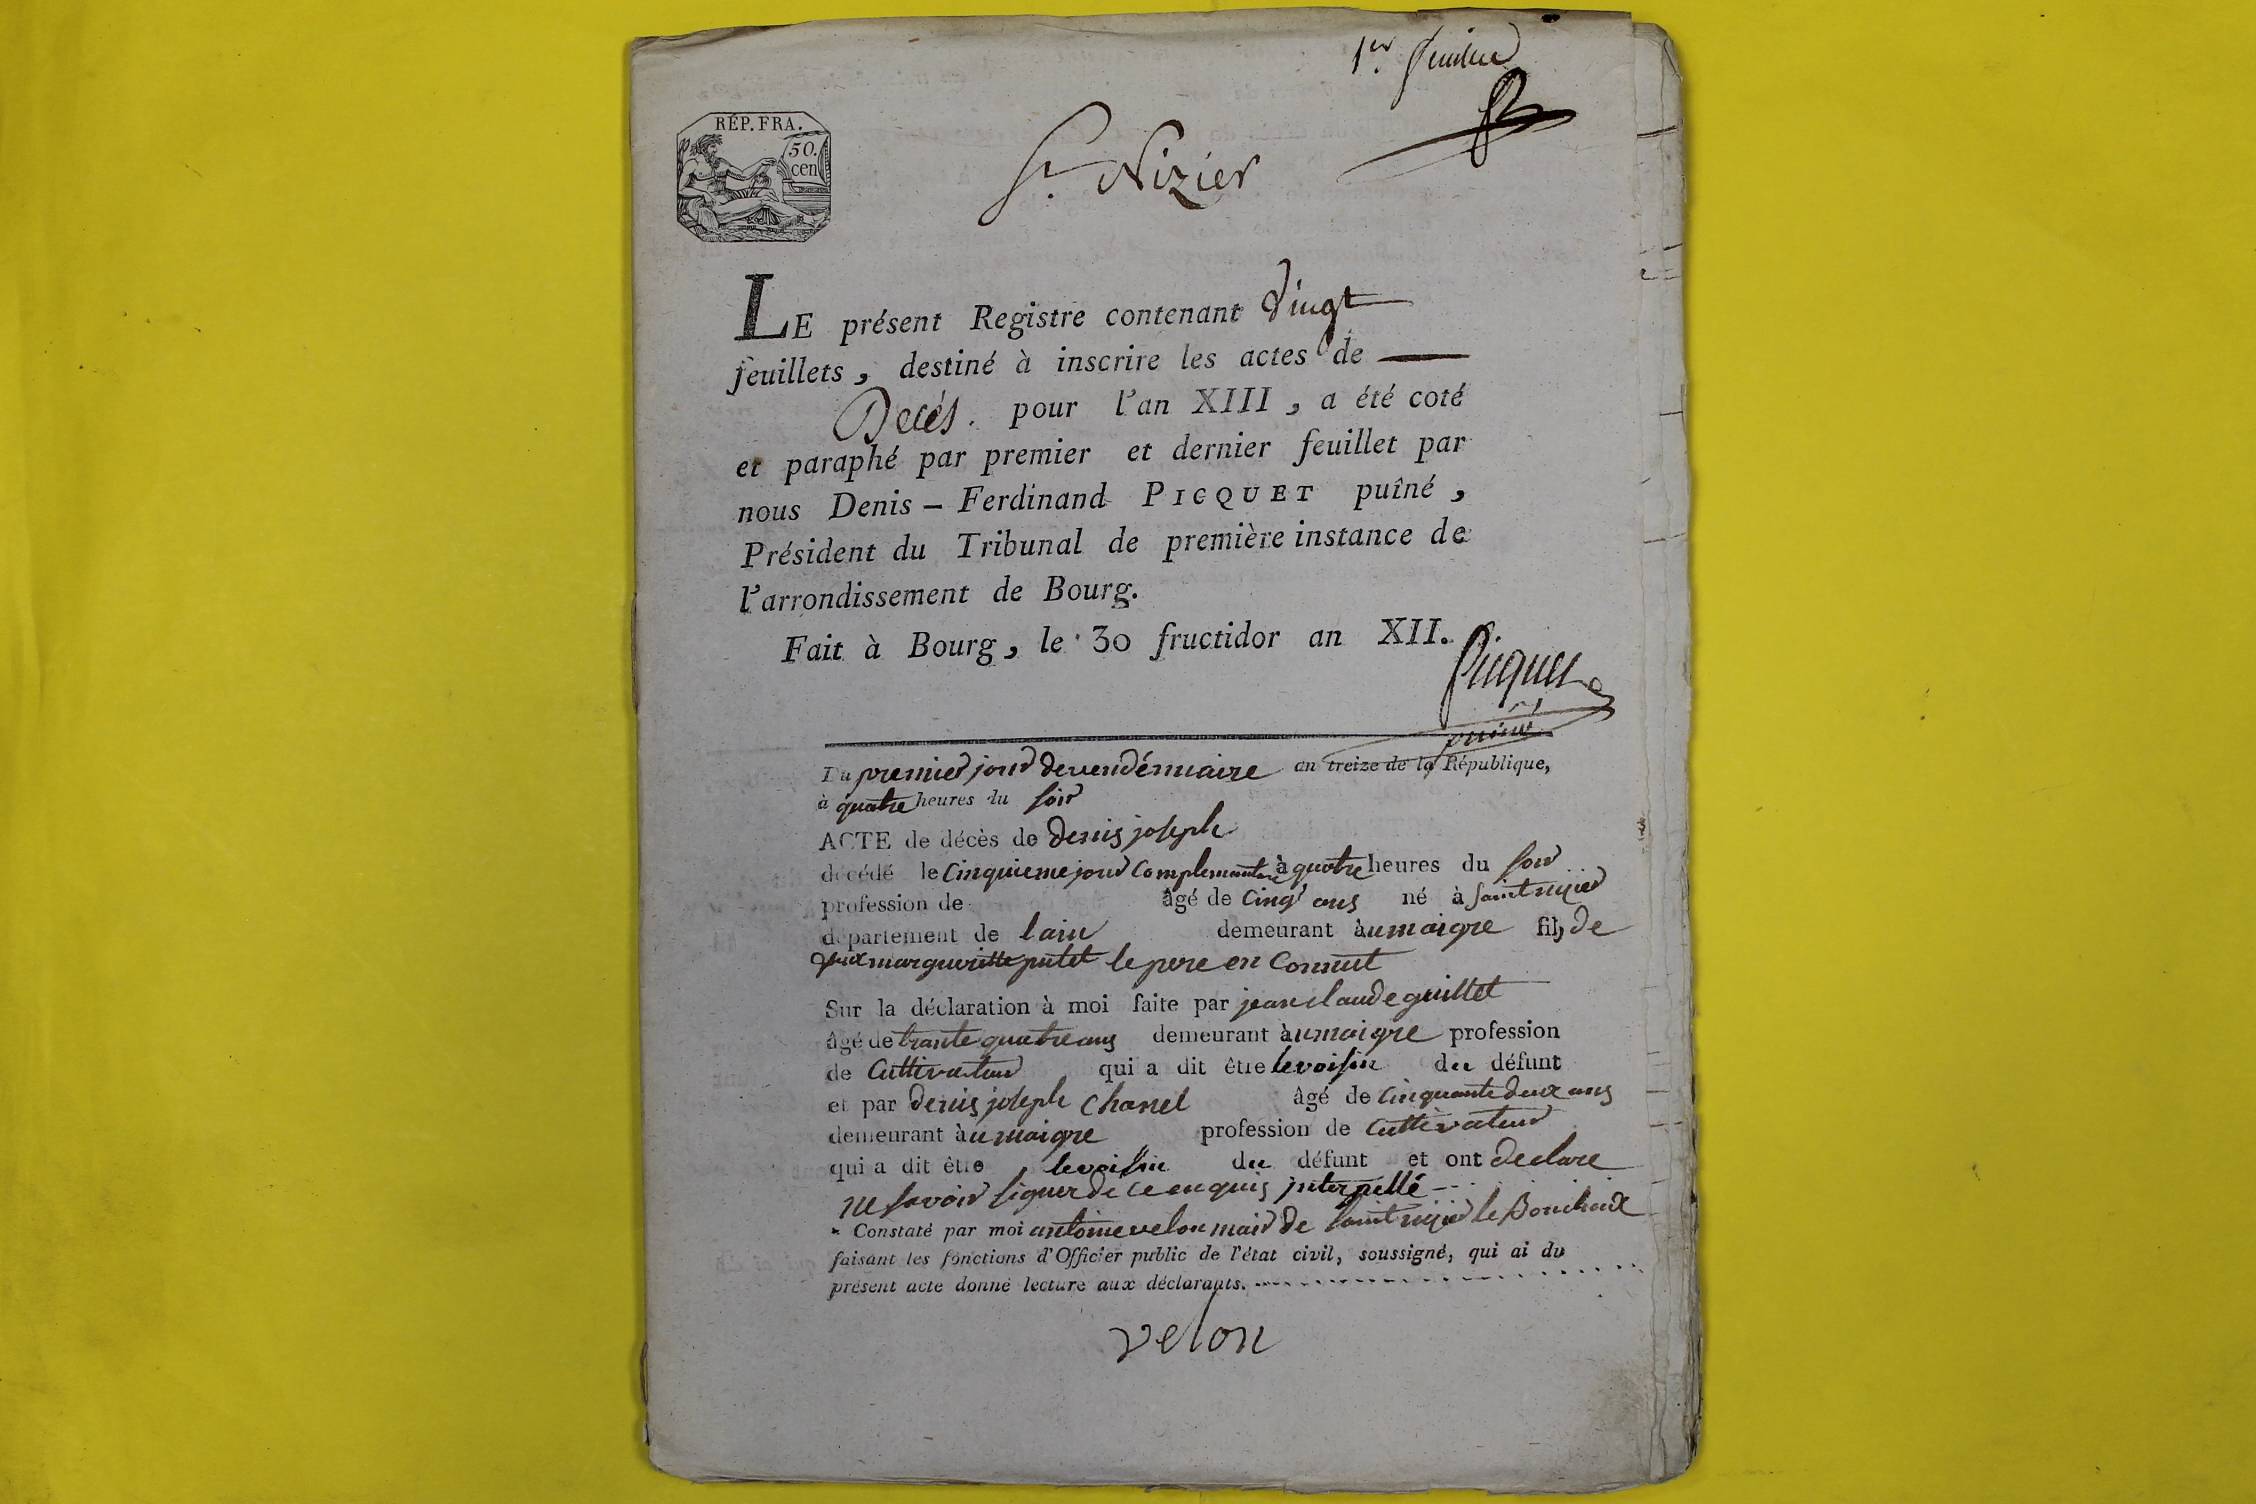 1er feuillet
RÉP. FRA.
50.
cen
St. Nizier
LE présent Registre contenant vingt
feuillets, destiné à inscrire les actes de
Décés. pour l'an XIII, a été coté
et paraphé par premier et dernier feuillet par
nous Denis-Ferdinand PICQUET puîné,
Président du Tribunal de première instance de
l'arrondissement de Bourg.
Fait à Bourg, le 30 fructidor an XII.
Picquet
puiné
Du premier jour de vendémiaire an treize de la République,
à quatre heures du soir
ACTE de décès de denis joseph
décédé le cinquieme jour complementaire à quatre heures du soir
profession de âgé de cinq ans né à saint nizier
département de lain demeurant à umaigre fils de
margueritte putet le pere en connut
Sur la déclaration à moi faite par jean claude guillet
âgé de trante quatre ans demeurant à umaigre profession
de cultivateur qui a dit être le voisin du défunt
et par denis joseph chanel âgé de cinquante deux ans
demeurant à umaigre profession de cultivateur
qui a dit être le voisin du défunt et ont declare
ne savoir signer de ce enquis interpellé
Constaté par moi antoine velon mair de saint nizier le Bouchoux
faisant les fonctions d'Officier public de l'état civil, soussigné, qui ai du
présent acte donné lecture aux déclarants.
velon